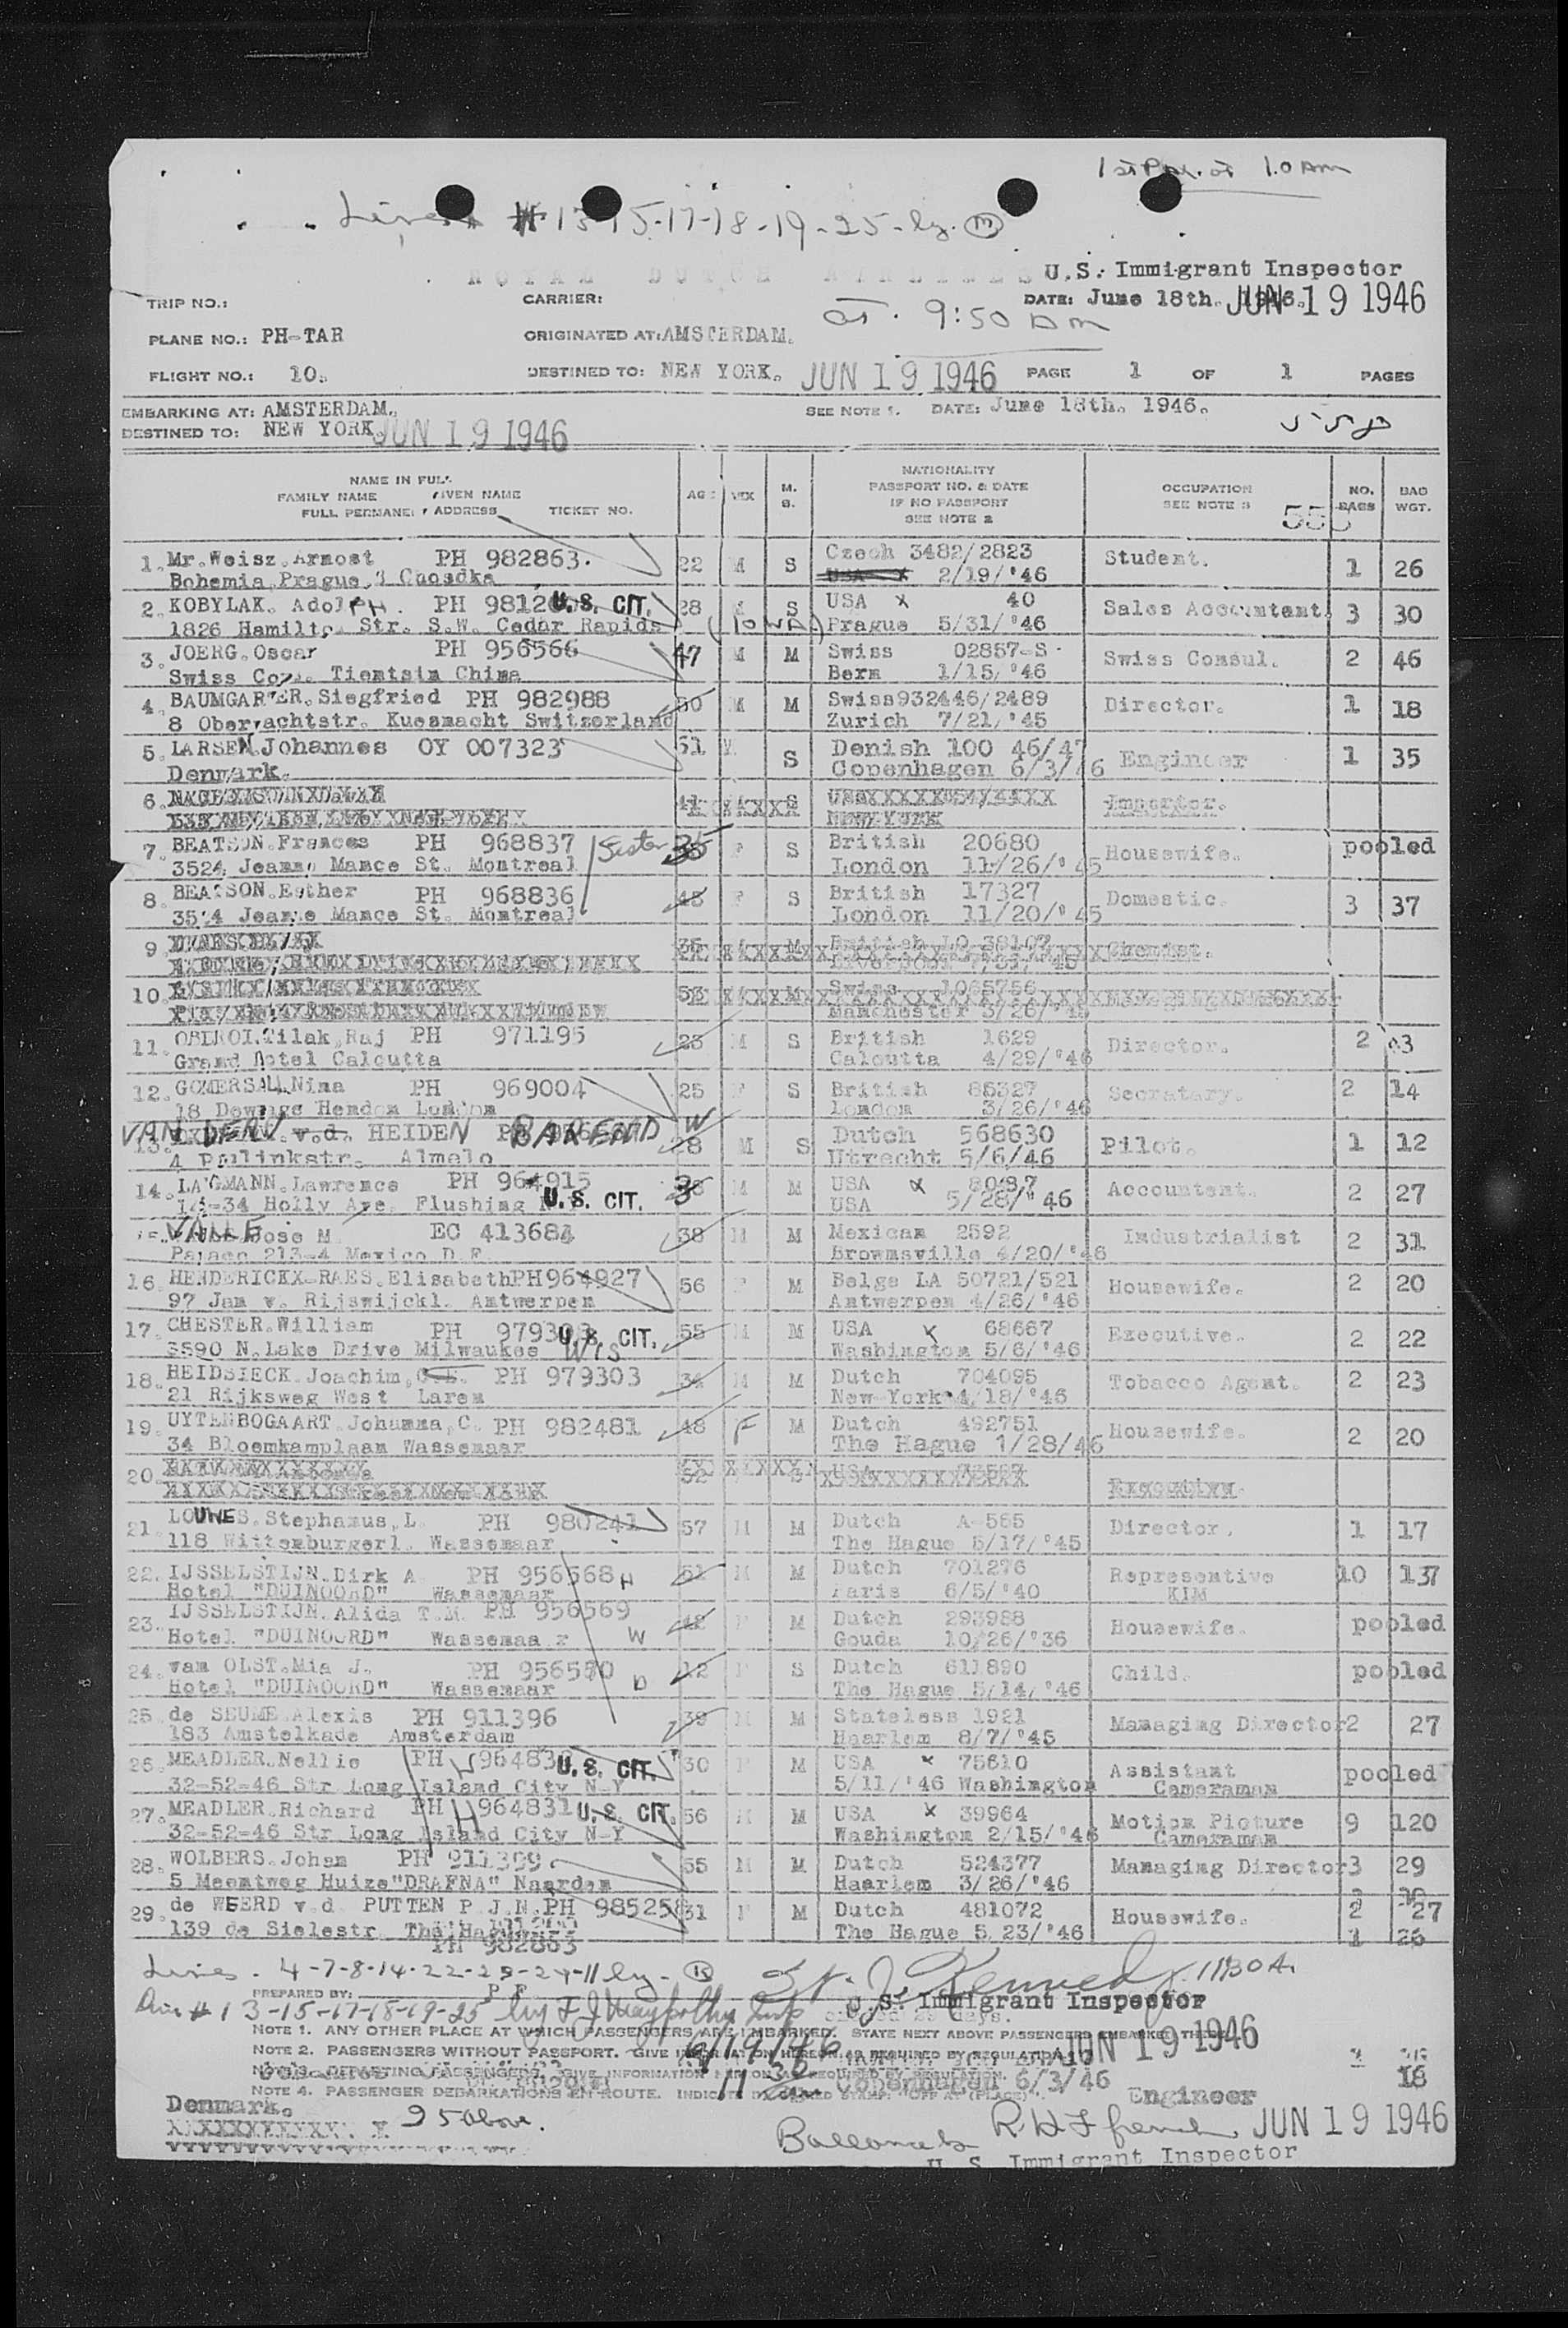 1.0 AM
13-15-17-18-19-25-by. (13)
ROYAL DUTCH AIRLINES U.S. Immigrant Inspector
TRIP NO.: CARRIER: DATE: June 18th. 1946. JUN 19 1946
at 9:50 am
PLANE NO.: PH-TAR ORIGINATED AT: AMSTERDAM.
FLIGHT NO.: 10. DESTINED TO: NEW YORK. JUN 19 1946 PAGE 1 OF 1 PAGES
EMBARKING AT: AMSTERDAM. SEE NOTE 1. DATE: June 18th. 1946.
DESTINED TO: NEW YORK. JUN 19 1946 558
NAME IN FULL FAMILY NAME GIVEN NAME FULL PERMANENT ADDRESS TICKET NO. AGE SEX M. S. NATIONALITY PASSPORT NO. & DATE IF NO PASSPORT SEE NOTE 2 OCCUPATION SEE NOTE 3 NO. BAGS BAG WGT.
1. Mr. Weisz. Arnost PH 982863. 22 M S Czech 3482/2823 Student. 1 26
Bohemia Prague, 3 2/19/'46
2. KOBYLAK. AdolPH. U.S. CIT. 28 S USA x 40 Sales Accountant. 3 30
1826 Hamilton Str. S.W. Cedar Rapids (IOWA) Prague 5/31/'46
3. JOERG. Oscar PH 956566 47 M M Swiss 02857-S Swiss Consul. 2 46
Swiss Tientsin China Bern 1/15/'46
4. BAUMGARTER. Siegfried PH 982988 M M Swiss 932446/2489 Director. 1 18
8 Oberwachtstr. Kuesnacht Switzerland Zurich 7/21/'45
5. LARSEN. Johannes OY 007323 51 M S Denish 100 46/47 Engineer 1 35
Denmark. Copenhagen 6/3/46
6. Importer.
NEW YORK
7. BEATSON. Frances PH 968837 Sister 35 F S British 20680 Housewife. pooled
3524 Jeanne Mance St. Montreal London 11/26/'45
8. BEATSON. Esther PH 968836 F S British 17327 Domestic. 3 37
3524 Jeanne Mance St. Montreal London 11/20/'45
9. British Chemist.
10. Swiss 1065756
Manchester 3/26/'46
11. OBEROI. Tilak, Raj PH 971195 23 M S British 1629 Director. 2 43
Grand Hotel Calcutta Calcutta 4/29/'46
12. GOMERSALL. Nina PH 969004 25 F S British 85327 Secretary. 2 14
18 Hendon London London 3/26/'46
13. VAN DEN v.d. HEIDEN BAREND W 28 M S Dutch 568630 Pilot. 1 12
4 Almelo Utrecht 5/6/46
14. LANGMANN. Lawrence PH 964915 M M USA x Accountant. 2 27
Holly Ave. Flushing U.S. CIT. USA 5/28/'46
15. VALLE Jose M EC 413684 38 M M Mexican 2592 Industrialist 2 31
213-4 Mexico D.F. Brownsville 4/20/'46
16. HENDERICKX-RAES. Elisabeth PH 964927 56 F M Belge LA 50721/521 Housewife. 2 20
97 Jan v. Rijswijckl. Antwerpen Antwerpen 4/26/'46
17. CHESTER. William PH U.S. CIT. 55 M M USA x 68667 Executive. 2 22
3590 N. Lake Drive Milwaukee Wis Washington 5/6/'46
18. HEIDSIECK. Joachim, PH 979303 34 M M Dutch 704095 Tobacco Agent. 2 23
21 Rijksweg West Laren New-York 4/18/'46
19. UYTENBOGAART. Johanna, C. PH 982481 48 F M Dutch 492751 Housewife. 2 20
34 Bloemkamplaan Wassenaar The Hague 1/28/46
20. 52
21. LOUWES. Stephanus, L. PH 980241 57 M M Dutch A-565 Director. 1 17
118 Wittenburgerl. Wassenaar The Hague 5/17/'45
22. IJSSELSTIJN. Dirk A PH 956568 H 51 M M Dutch 701276 Representive 10 137
Hotel "DUINOORD" Wassenaar Paris 6/5/'40 KLM
23. IJSSELSTIJN. Alida T.M. PH 956569 F M Dutch 293988 Housewife. pooled
Hotel "DUINOORD" Wassenaar W Gouda 10/26/'36
24. van OLST. Mia J. PH 956570 12 F S Dutch 611890 Child. pooled
Hotel "DUINOORD" Wassenaar D The Hague 5/14/'46
25. de SEUME Alexis PH 911396 39 M M Stateless 1921 Managing Director 2 27
183 Amstelkade Amsterdam Haarlem 8/7/'45
26. MEADLER. Nellie PH W 964830 U.S. CIT. 30 F M USA x 75610 Assistant pooled
32-52-46 Str Long Island City N-Y 5/11/'46 Washington Cameraman
27. MEADLER. Richard PH H 964831 U.S. CIT. 56 M M USA x 39964 Motion Picture 9 120
32-52-46 Str Long Island City N-Y Washington 2/15/'46 Cameraman
28. WOLBERS. Johan PH 911399 55 M M Dutch 524377 Managing Director 3 29
5 Meentweg Huize "DRAFNA" Naarden Haarlem 3/26/'46
29. de WEERD v.d. PUTTEN P.J.N. PH 985258 31 F M Dutch 481072 Housewife. 2 27
139 de Sielestr. The Hague The Hague 5/23/'46 1 26
PH 982863
Lines. 4-7-8-14-22-23-24-11 by 11:30 A.
PREPARED BY: U.S. Immigrant Inspector
13-15-17-18-19-25 by
NOTE 1. ANY OTHER PLACE AT WHICH PASSENGERS ARE EMBARKED. STATE NEXT ABOVE PASSENGERS EMBARKED THERE. JUN 19 1946
NOTE 2. PASSENGERS WITHOUT PASSPORT. GIVE INFORMATION HEREON AS REQUIRED BY REGULATION. 6/19/46
NOTE 3. DEPARTING PASSENGERS. GIVE INFORMATION HEREON AS REQUIRED BY REGULATION. Copenhagen 6/3/46 18
NOTE 4. PASSENGER DEBARKATIONS EN ROUTE. Engineer
Denmark.
25 above. JUN 19 1946
U. S. Immigrant Inspector